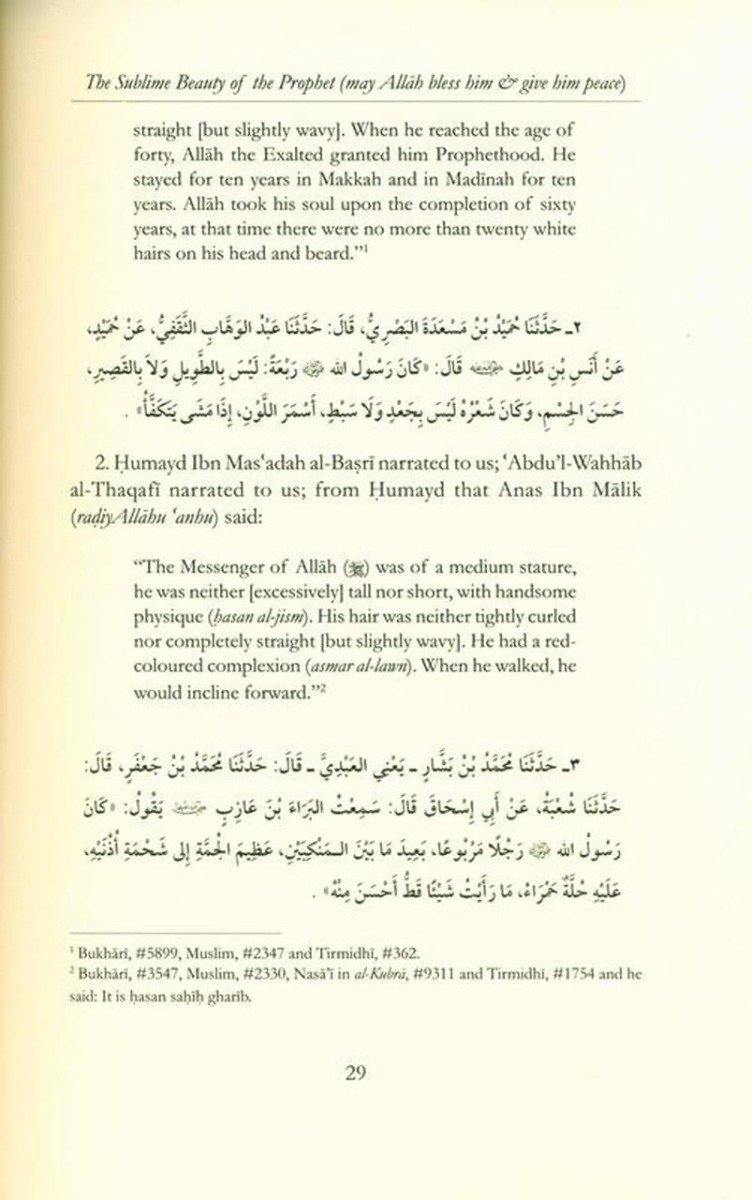 The Sublime Beauty of the Prophet (may Allāh bless him & give him peace)
straight [but slightly wavy]. When he reached the age of
forty, Allāh the Exalted granted him Prophethood. He
stayed for ten years in Makkah and in Madīnah for ten
years. Allāh took his soul upon the completion of sixty
years, at that time there were no more than twenty white
hairs on his head and beard.”¹
٢ـ حَدَّثَنَا حُمَيْدُ بْنُ مَسْعَدَةَ البَصْرِيُّ، قَالَ: حَدَّثَنَا عَبْدُ الوَهَّابِ الثَّقَفِيُّ، عَنْ حُمَيْدٍ،
عَنْ أَنَسِ بْنِ مَالِكٍ قَالَ: «كَانَ رَسُولُ الله ﷺ رَبْعَةً: لَيْسَ بِالطَّوِيلِ وَلاَ بِالقَصِيرِ،
حَسَنَ الجِسْمِ، وَكَانَ شَعْرُهُ لَيْسَ بِجَعْدٍ وَلَا سَبْطٍ، أَسْمَرَ اللَّوْنِ، إِذَا مَشَى يَتَكَفَّأُ» .
2. Ḥumayd Ibn Mas‘adah al-Baṣrī narrated to us; ‘Abdu’l-Wahhāb
al-Thaqafī narrated to us; from Ḥumayd that Anas Ibn Mālik
(raḍiyAllāhu ‘anhu) said:
“The Messenger of Allāh (ﷺ) was of a medium stature,
he was neither [excessively] tall nor short, with handsome
physique (ḥasan al-jism). His hair was neither tightly curled
nor completely straight [but slightly wavy]. He had a red-
coloured complexion (asmar al-lawn). When he walked, he
would incline forward.”²
٣ـ حَدَّثَنَا مُحَمَّدُ بْنُ بَشَّارٍ ـ يَعْنِي العَبْدِيَّ ـ قَالَ: حَدَّثَنَا مُحَمَّدُ بْنُ جَعْفَرٍ، قَالَ:
حَدَّثَنَا شُعْبَةُ، عَنْ أَبِي إِسْحَاقَ قَالَ: سَمِعْتُ البَرَاءَ بْنَ عَازِبٍ يَقُولُ: «كَانَ
رَسُولُ الله ﷺ رَجُلًا مَرْبُوعًا، بَعِيدَ مَا بَيْنَ الـمَنْكِبَيْنِ، عَظِيمَ الجُمَّةِ إِلى شَحْمَةِ أُذُنَيْهِ،
عَلَيْهِ حُلَّةٌ حَمْرَاءُ، مَا رَأَيْتُ شَيْئًا قَطُّ أَحْسَنَ مِنْهُ» .
¹ Bukhārī, #5899, Muslim, #2347 and Tirmidhī, #362.
² Bukhārī, #3547, Muslim, #2330, Nasā’ī in al-Kubrā, #9311 and Tirmidhī, #1754 and he
said: It is ḥasan saḥīḥ gharīb.
29